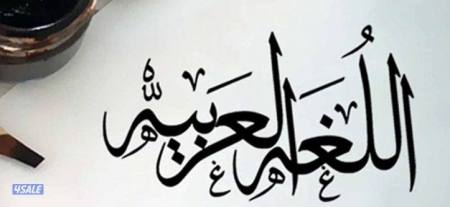 اللُغه العربيه
4SALE